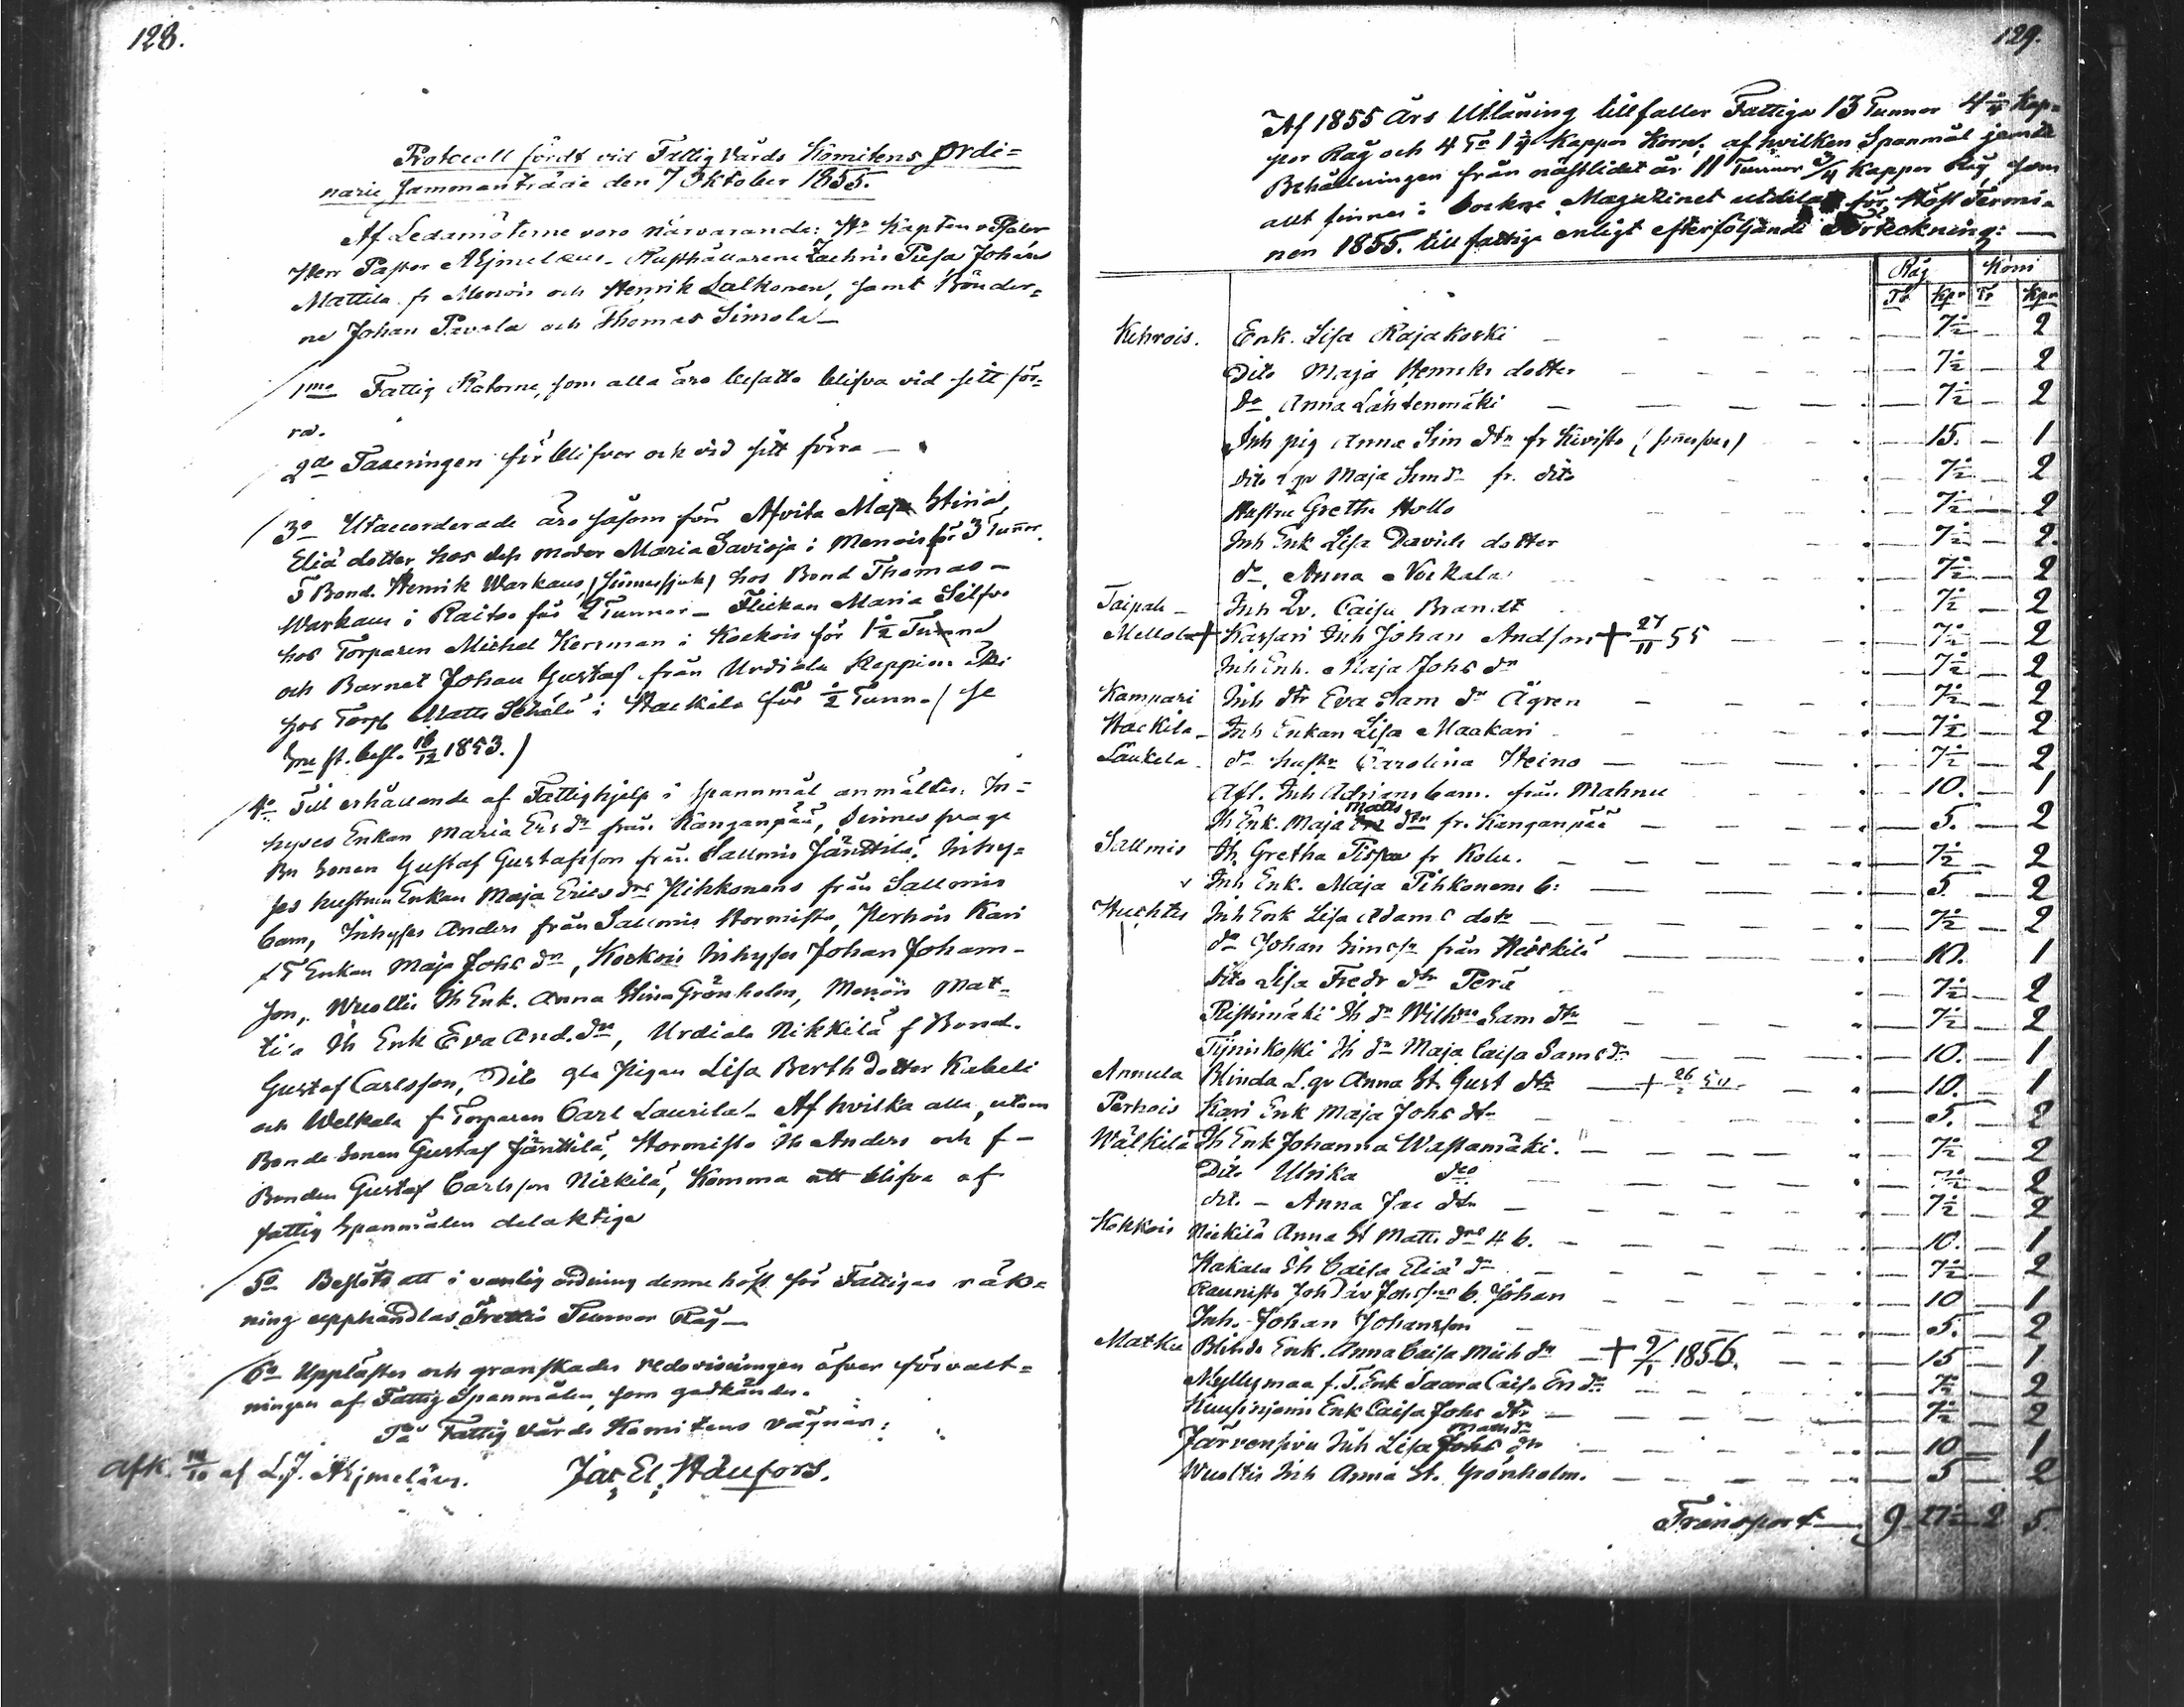 128.
Protocoll fördt vid Fattig Vårds Komitens Ordi=
narie sammanträde den 7 Oktober 1855.
Af Ledamöterne voro närvarande: Hr Kapten
Herr Pastor Ahjmelæus. Rusthållarene Zachris Prusa Johan
Mattila fr Menois och Henrik Salkonen, samt Bönder=
ne Johan Pavola och Thomas Simola
1mo Fattig Rotorne, som alla äro besatta blifva vid sitt för=
ra.
2do Taxeringen förblifver och vid sitt förra
3o Utaccorderade äro såsom förr Afvita Maja Stina
Eliæ dotter hos dess moder Maria Savioja i Menois för 3 Tunnor.
F Bond. Henrik Warkaus, (sinnessjuk) hos Bond Thomas
Warkaus i Raitoo för 2 Tunnor – Flickan Maria Silfvo
hos Torparen Michel Hersman i Kockois för 1 1/2 Tunna
och Barnet Johan Gustaf från Urdiala
hos Torp. Matts i Hackila för 1/2 Tunna (se
st. besl. 18/12 1853.)
4o Till erhållande af Fattighjelp i spannmål anmältes: In=
hyses Enkan Maria Ers dr från Kanganpää, Sinnes svage
Bn Sonen Gustaf Gustafsson från Salmis Jänttilä, Inhy=
ses hustrun Enkan Maja Erics drs Pihkonens från Sallmis
barn, Inhyses Anders från Salmis Hormisto, Perhois Kari
f T Enkan Maja Johs dr, Kockois Inhyses Johan Johans-
son, Wuoltis Ih Enk. Anna Stina Grönholm, Menois Mat=
tila Ih Enk Eva And. dr, Urdiala Nikkilä f Bond.
Gustaf Carlsson, Dito gla Pigan Lisa Berth dotter Kaheli
och Welkala f Torparen Carl Laurila. Af hvilka alla, utom
Bonde Sonen Gustaf Jänttilä, Hormisto Ih Anders och f-
Bonden Gustaf Carlsson Nickilä, Komma att blifva af
fattig Spanmålen delaktiga
5o Beslöts att i vanlig ordning denne höst för Fattigas räk=
ning upphandlas Trettio Tunnor Råg
6o Upplästes och granskades redovisningen öfver förvalt=
ningen af Fattig Spanmålen, som godkändes.
På Fattig Vårds Komitens vägnar:
afk. 14/10 af L.J. Ahjmelæus. Jac. El. Häufors.
129.
Af 1855 års Utlåning tillfaller Fattiga 13 Tunnor 4 Kap=
par Råg och 4 Tr 1 Kappar Korn; af hvilken Spanmål jemte
Behållningen från nästlidet år 11 Tunnor 3/4 Kappar Råg, som
allt finnes i Sockne Magazinet utdelas för Höst Termi
nen 1855. till fattige enligt efterföljande Förteckning:
Råg Korn
Tr Kpr Tr Kpr
Kehrois. Enk. Lisa Rajakoski 7 1/2 2
Dito Maja Henriks dotter 7 1/2 2
do Anna Lähtenmäki 7 1/2 2
Inh pig Anna Sim dtr fr Kivisto (sinnessvag) 15. 1
Dito Maja Sim dr fr. dito 7 1/2 2
Hustru Gretha Hollo 7 1/2 2
Inh Enk Lisa Davids dotter 7 1/2 2
do Anna Nockala 7 1/2 2
Taipale Inh Qv. Caisa Brandt 7 1/2 2
Mellola + Kassari Inh Johan Andsson + 27/11 55 7 1/2 2
Inh Enk. Maja Johs dr 7 1/2 2
Kampari Inh dtr Eva Sam dr Ågren 7 1/2 2
Hackila Inh Enkan Lisa Maakari 7 1/2 2
Laukela do hustr Carolina Heino 7 1/2 2
Afl. Inh Adrians barn. från Mahnu 10. 1
Matts
Ih Enk. Maja dtr fr. Kanganpää 5. 2
Sallmis Ih. Gretha fr Kolu. 7 1/2 2
Inh Enk. Maja Pihkonens b: 5 2
Huhtis Inh Enk Lisa Adams dotr 7 1/2 2
do Johan Simss. från Heickilä 10. 1
Dito Lisa Fredr dtr Perä 7 1/2 2
Ristimäki Ih dr Sam dtr 7 1/2 2
Tynnikoski Ih dr Maja Caisa Sams dr 10. 1
Annula Blinda L. qv Anna St. Gust dtr + 26/2 10. 1
Perhois Kari Enk Maja Johs dtr 5. 2
Wälkilä Ih Enk Johanna Wastamäki. 7 1/2 2
Dito Ulrika do 7 1/2 2
dit. - Anna Jac dtr 7 1/2 2
Kokkois Nickilä Anna St Matts drs 4 b. 10. 1
Hakala Ih Caisa Eliæ dr 7 1/2 2
Raunisto Joh b. Johan 10 1
Inh. Johan Johansson 5. 2
Matku Blinde Enk. Anna Caisa Mich dr + 9/1 1856. 15 1
Myllymaa f. T. Enk Saara Caisa Ers dr 7 1/2 2
Kuusinjemi Enk Caisa Johs dtr 7 1/2 2
Matts dr
Järvensivu Inh Lisa Johs dr 10 1
Wuoltis Inh Anna St. Grönholm. 5 2
Transport 9 27 1/2 2 5.